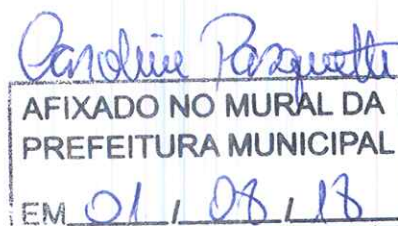 Caroline Pasquetti
AFIXADO NO MURAL DA
PREFEITURA MUNICIPAL
EM 01 / 08 / 18